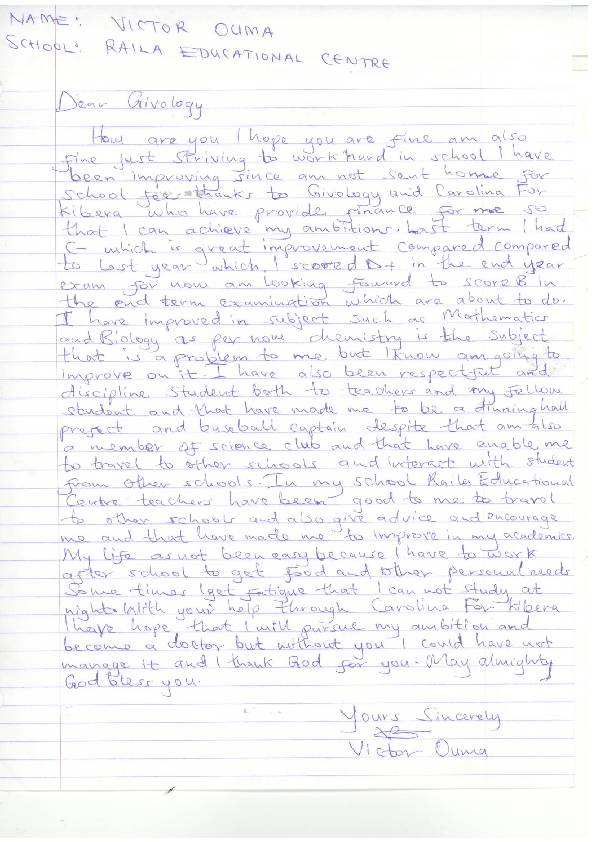 NAME: VICTOR OUMA
SCHOOL: RAILA EDUCATIONAL CENTRE
Dear Givology
How are you I hope you are fine am also
fine just striving to work hard in school I have
been improving since am not sent home for
school fee thanks to Givology and Carolina For
Kibera who have provide finance for me so
that I can achieve my ambitions. Last term I had
C- which is great improvement compared compared
to last year which I scored D+ in the end year
exam for now am looking foward to score B in
the end term examination which are about to do.
I have improved in subject such as Mathematics
and Biology as per now chemistry is the subject
that is a problem to me but I know am going to
improve on it. I have also been respectful and
discipline student both to teachers and my fellow
student and that have made me to be a dinning hall
prefect and baseball captain despite that am also
a member of science club and that have enable me
to travel to other schools and interact with student
from other schools. In my school Raila Educational
Centre teachers have been good to me to travel
to other schools and also give advice and encourage
me and that have made me to improve in my academics.
My life as not been easy because I have to work
after school to get food and other personal needs
Some times I get fatigue that I can not study at
night. With your help through Carolina For Kibera
I have hope that I will pursue my ambition and
become a doctor but without you I could have not
manage it and I thank God for you. May almighty
God bless you.
Yours Sincerely
Victor Ouma